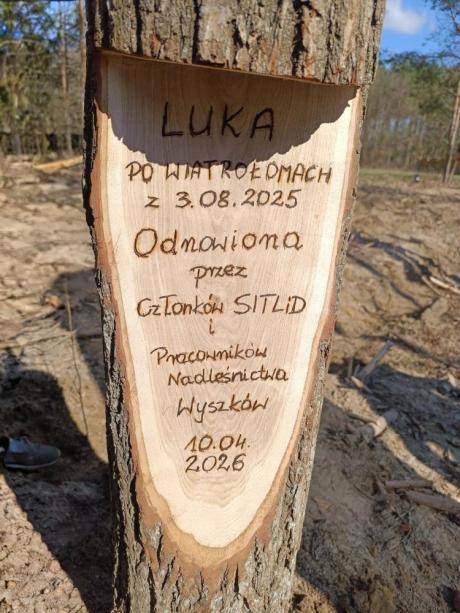 LUKA
PO WIATROŁOMACH
z 3.08.2025
Odnowiona
przez
Członków SITLiD
i
Pracowników
Nadleśnictwa
Wyszków
10.04.
2026